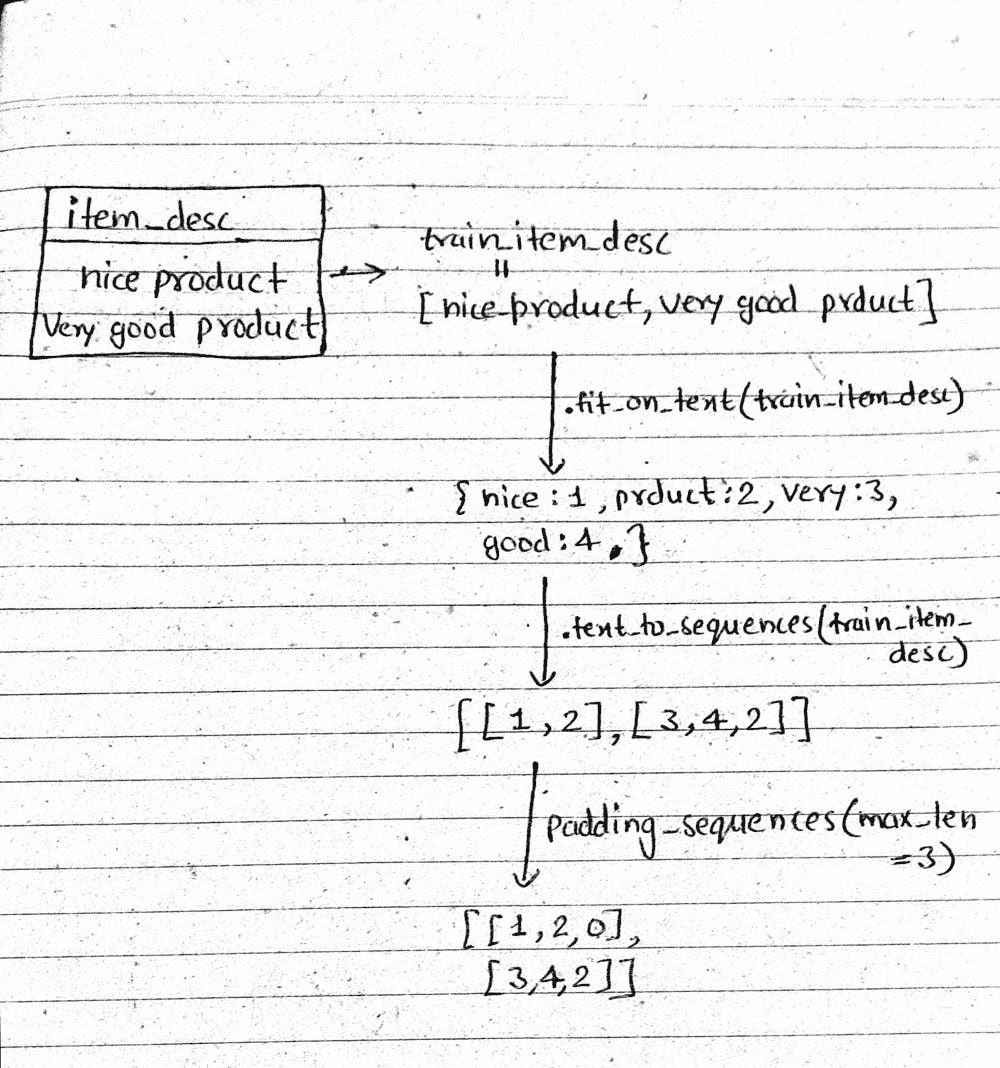 item_desc
nice product
Very good product
train_item_desc
=
[nice product, very good prduct]
.fit_on_text(train_item_desc)
{ nice : 1 , prduct : 2, very : 3,
good : 4 . }
.text_to_sequences(train_item_
desc)
[[1,2],[3,4,2]]
padding_sequences(max_len
=3)
[[1,2,0],
[3,4,2]]